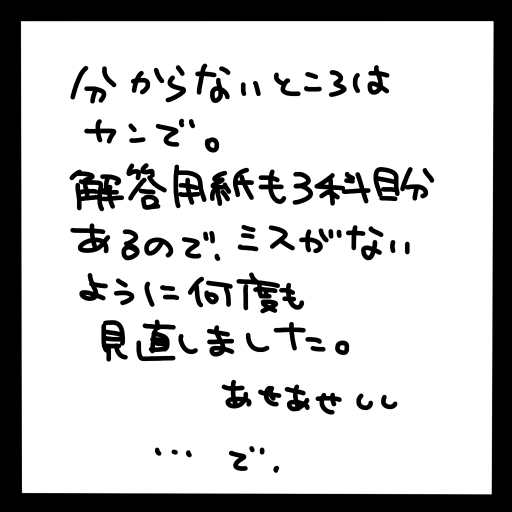 分からないところは
カンで。
解答用紙も3科目分
あるので、ミスがない
ように何度も
見直しました。
あせあせしし
…で、